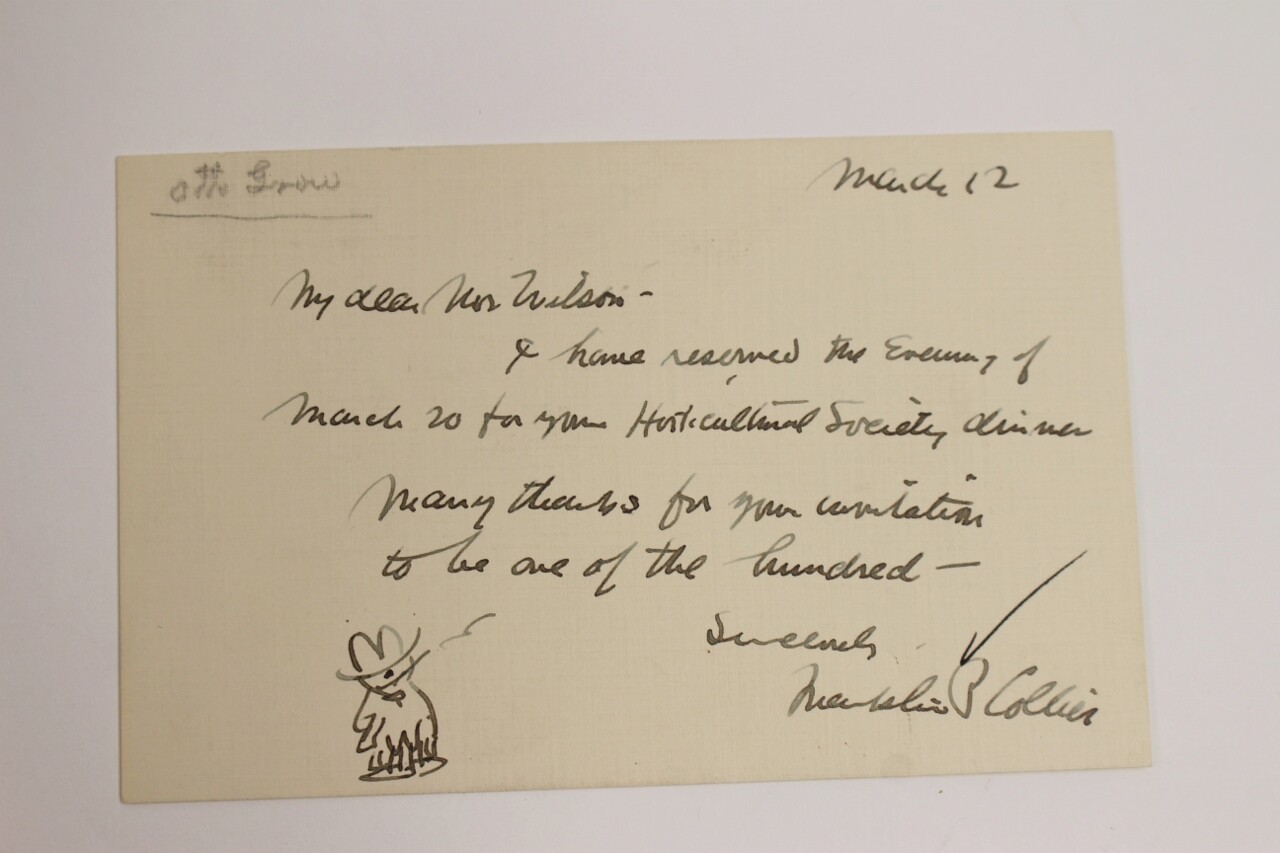 March 12
My dear Mr Wilson -
I have reserved the Evening of
March 20 for your Horticultural Society dinner
Many thanks for your invitation
to be one of the hundred -
Sincerely
Franklin P Collier